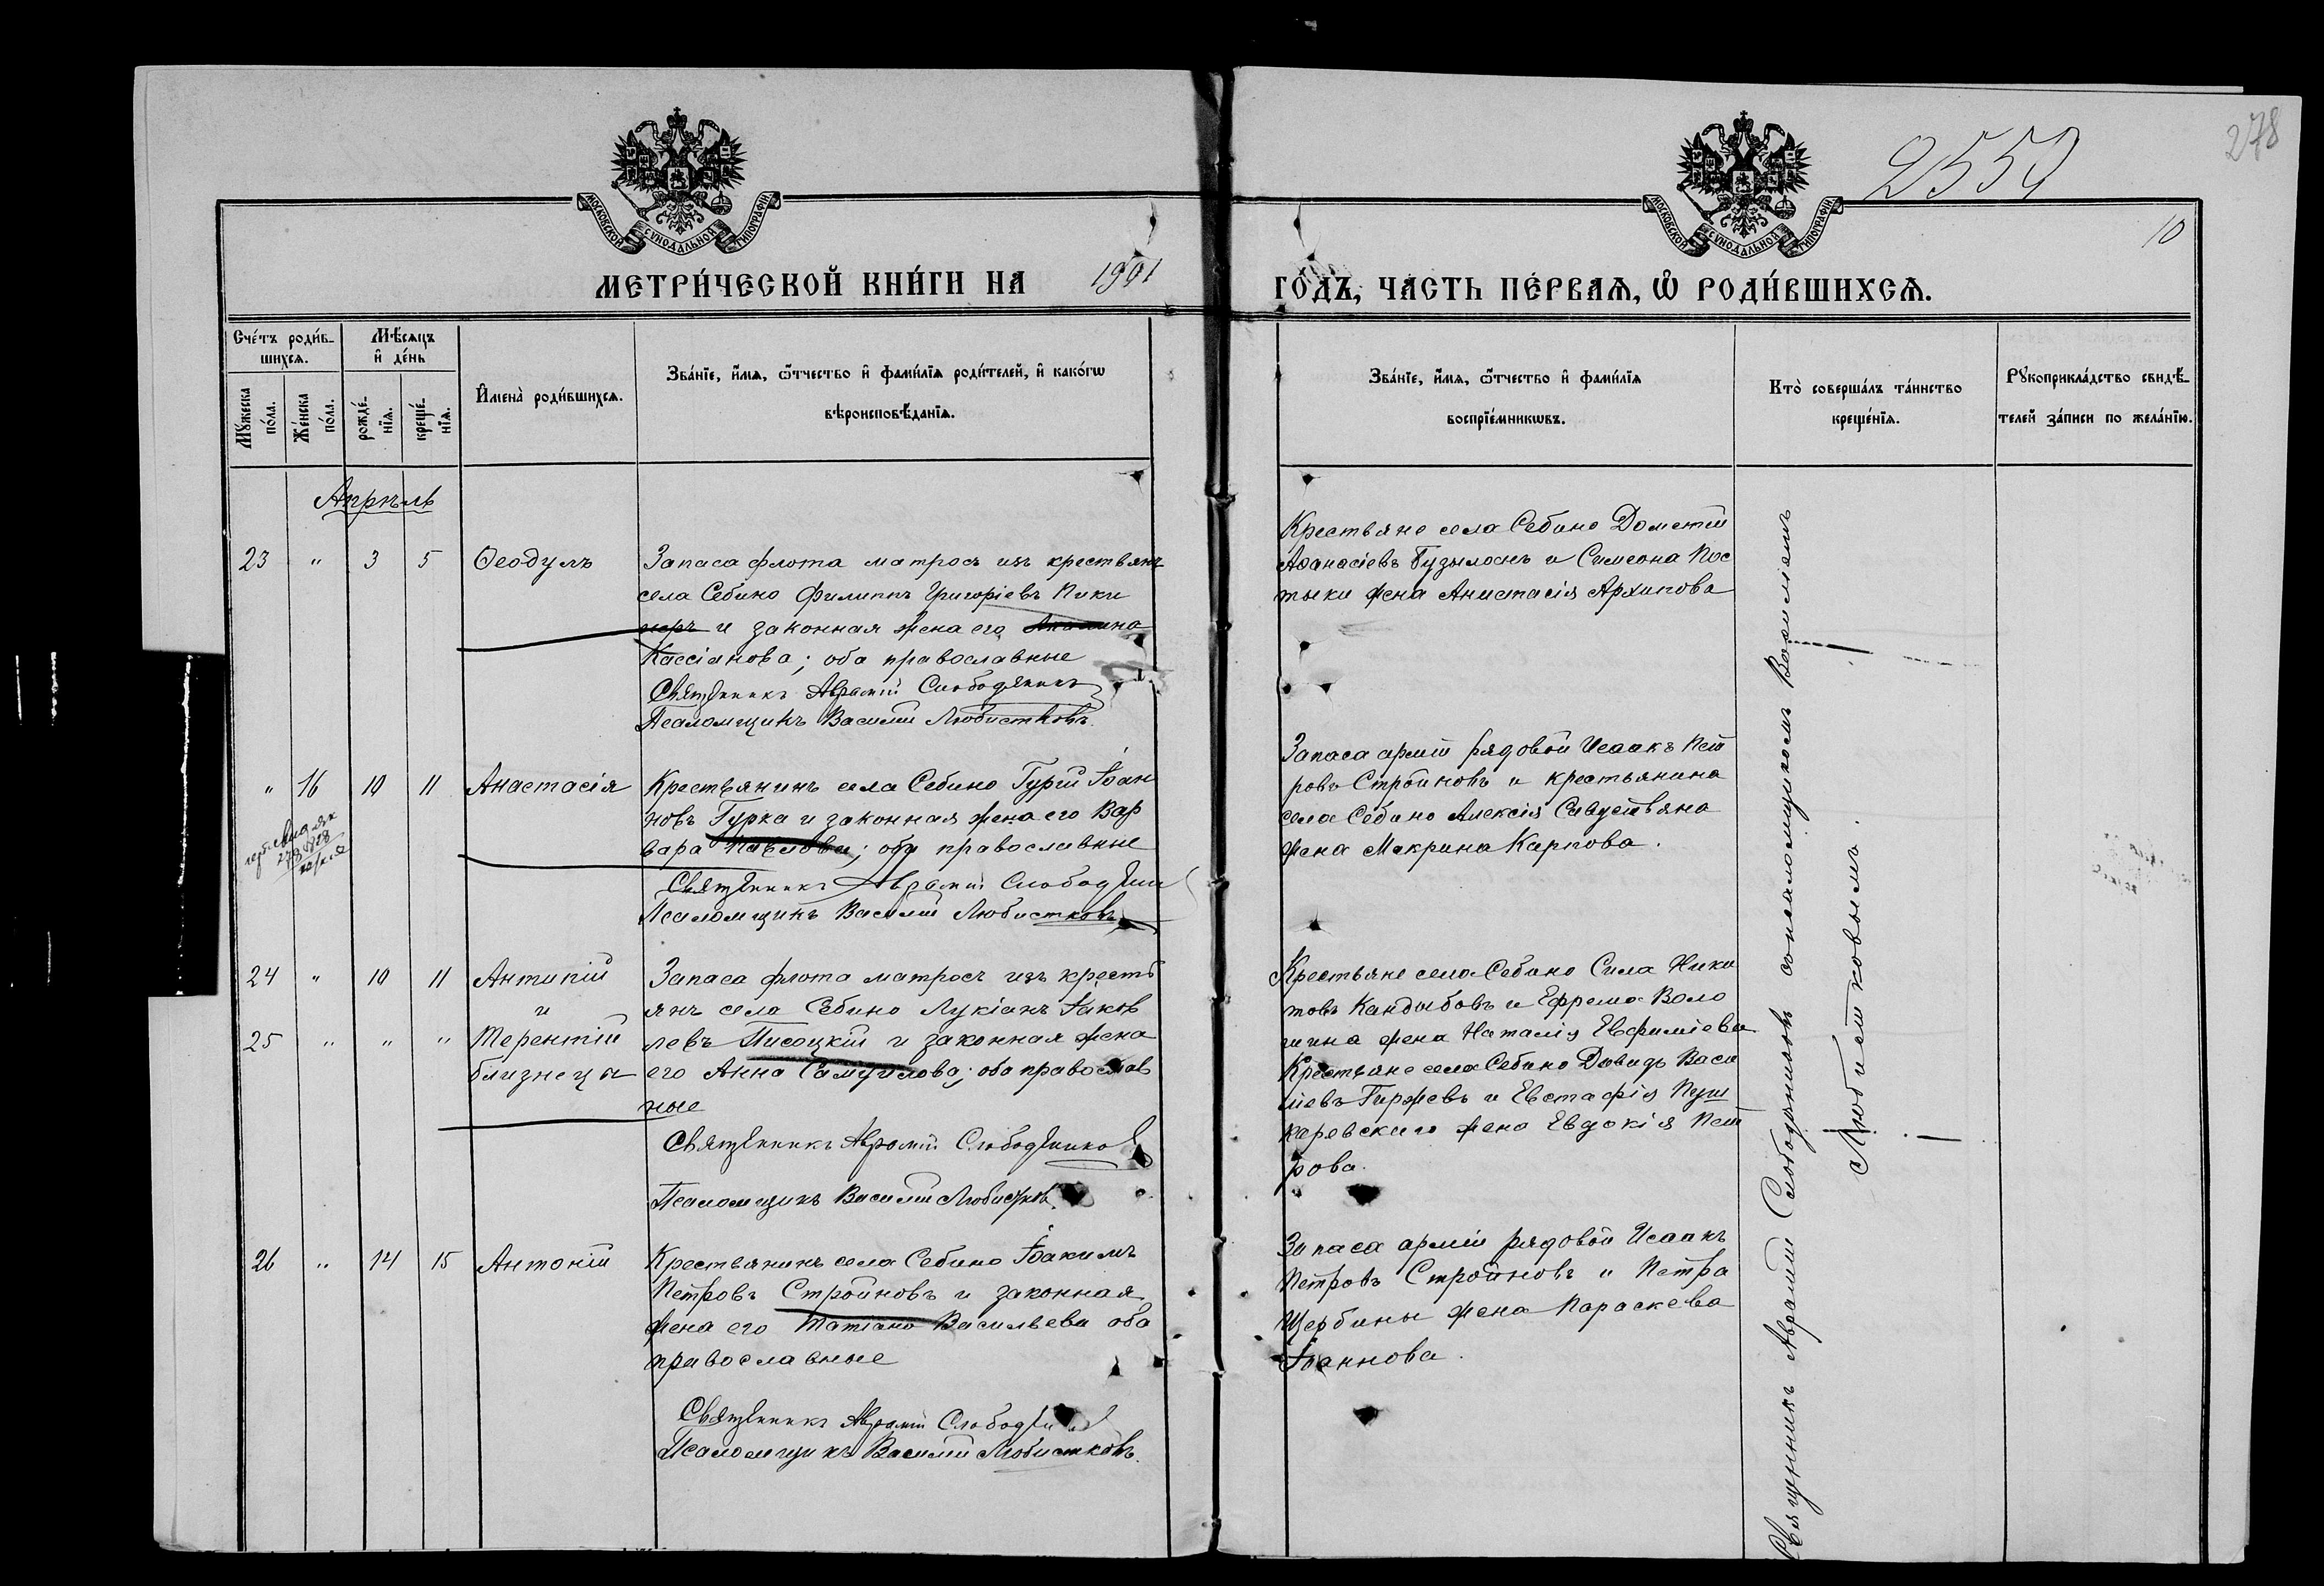 278
2559
10
МОСКОВСКОЙ СѴНОДАЛЬНОЙ ТИПОГРАФІИ
МОСКОВСКОЙ СѴНОДАЛЬНОЙ ТИПОГРАФІИ
МЕТРИ́ЧЕСКОЙ КНИ́ГИ НА 1901 ГО́ДЪ, ЧА́СТЬ ПЕ́РВАЯ, Ѡ РОДИ́ВШИХСЯ.
Сче́тъ роди́в-
шихся.
Мꙋ́жеска
по́ла.
Же́нска
по́ла.
Мѣ́сяцъ
и де́нь
рожде́-
нїя.
креще́-
нїя.
Имена̀ роди́вшихся.
Зва́нїе, и́мя, ѻ́тчество и фами́лїя роди́телей, и како́гѡ
вѣроисповѣ́данїя.
Зва́нїе, и́мя, ѻ́тчество и фами́лїя
воспрїе́мникѡвъ.
Кто̀ соверша́лъ та́инство
креще́нїя.
Рꙋкоприкла́дство свидѣ́-
телей за́писи по жела́нїю.
Апрѣль
23 " 3 5 Ѳеодулъ
Запаса флота матросъ изъ крестьянъ
села Себино Филиппъ Григоріевъ Пики
неръ и законная жена его
Кассіанова; оба православные
Священникъ Аврамій Слободяникъ
Псаломщикъ Василій Любистковъ.
Крестьяне села Себино Дометій
Аѳанасіевъ Бузылонъ и Симеона Пос
тыки жена Анастасія Архипова
" 16 10 11 Анастасія
Крестьянинъ села Себино Гурій Іоан
новъ Гурка и законная жена его Вар
вара Павлова; оба православные
Священникъ Аврамій Слободяник
Псаломщикъ Василій Любистковъ
Запаса арміи рядовой Исаакъ Пет
ровъ Стройновъ и крестьянина
села Себино Алексія Савустьяна
жена Макрина Карпова.
24 " 10 11 Антипій
и
25 " " " Терентій
близнецы
Запаса флота матросъ изъ кресть
янъ села Себино Лукіанъ Іаков
левъ Писоцкій и законная жена
его Анна Самуилова; оба православ
ные
Священникъ Аврамій Слободяников
Псаломщикъ Василій Любистков
Крестьяне села Себино Сила Ники
товъ Кандыбовъ и Ефрема Воло
шина жена Наталія Евфиміева
Крестьяне села Себино Давидъ Васи
ліевъ Гиржевъ и Евстафія Пуш
каревскаго жена Евдокія Пет
рова.
26 " 14 15 Антоній
Крестьянинъ села Себино Іоакимъ
Петровъ Стройновъ и законная
жена его Татіана Васильева оба
православные
Священникъ Аврамій Слободяник
Псаломщикъ Василій Любистковъ.
Запаса арміи рядовой Исаакъ
Петровъ Стройновъ и Петра
Щербины жена Параскева
Іоаннова.
Священникъ Аврамій Слободяникъ съ псаломщикомъ Василіемъ
Любистковымъ.